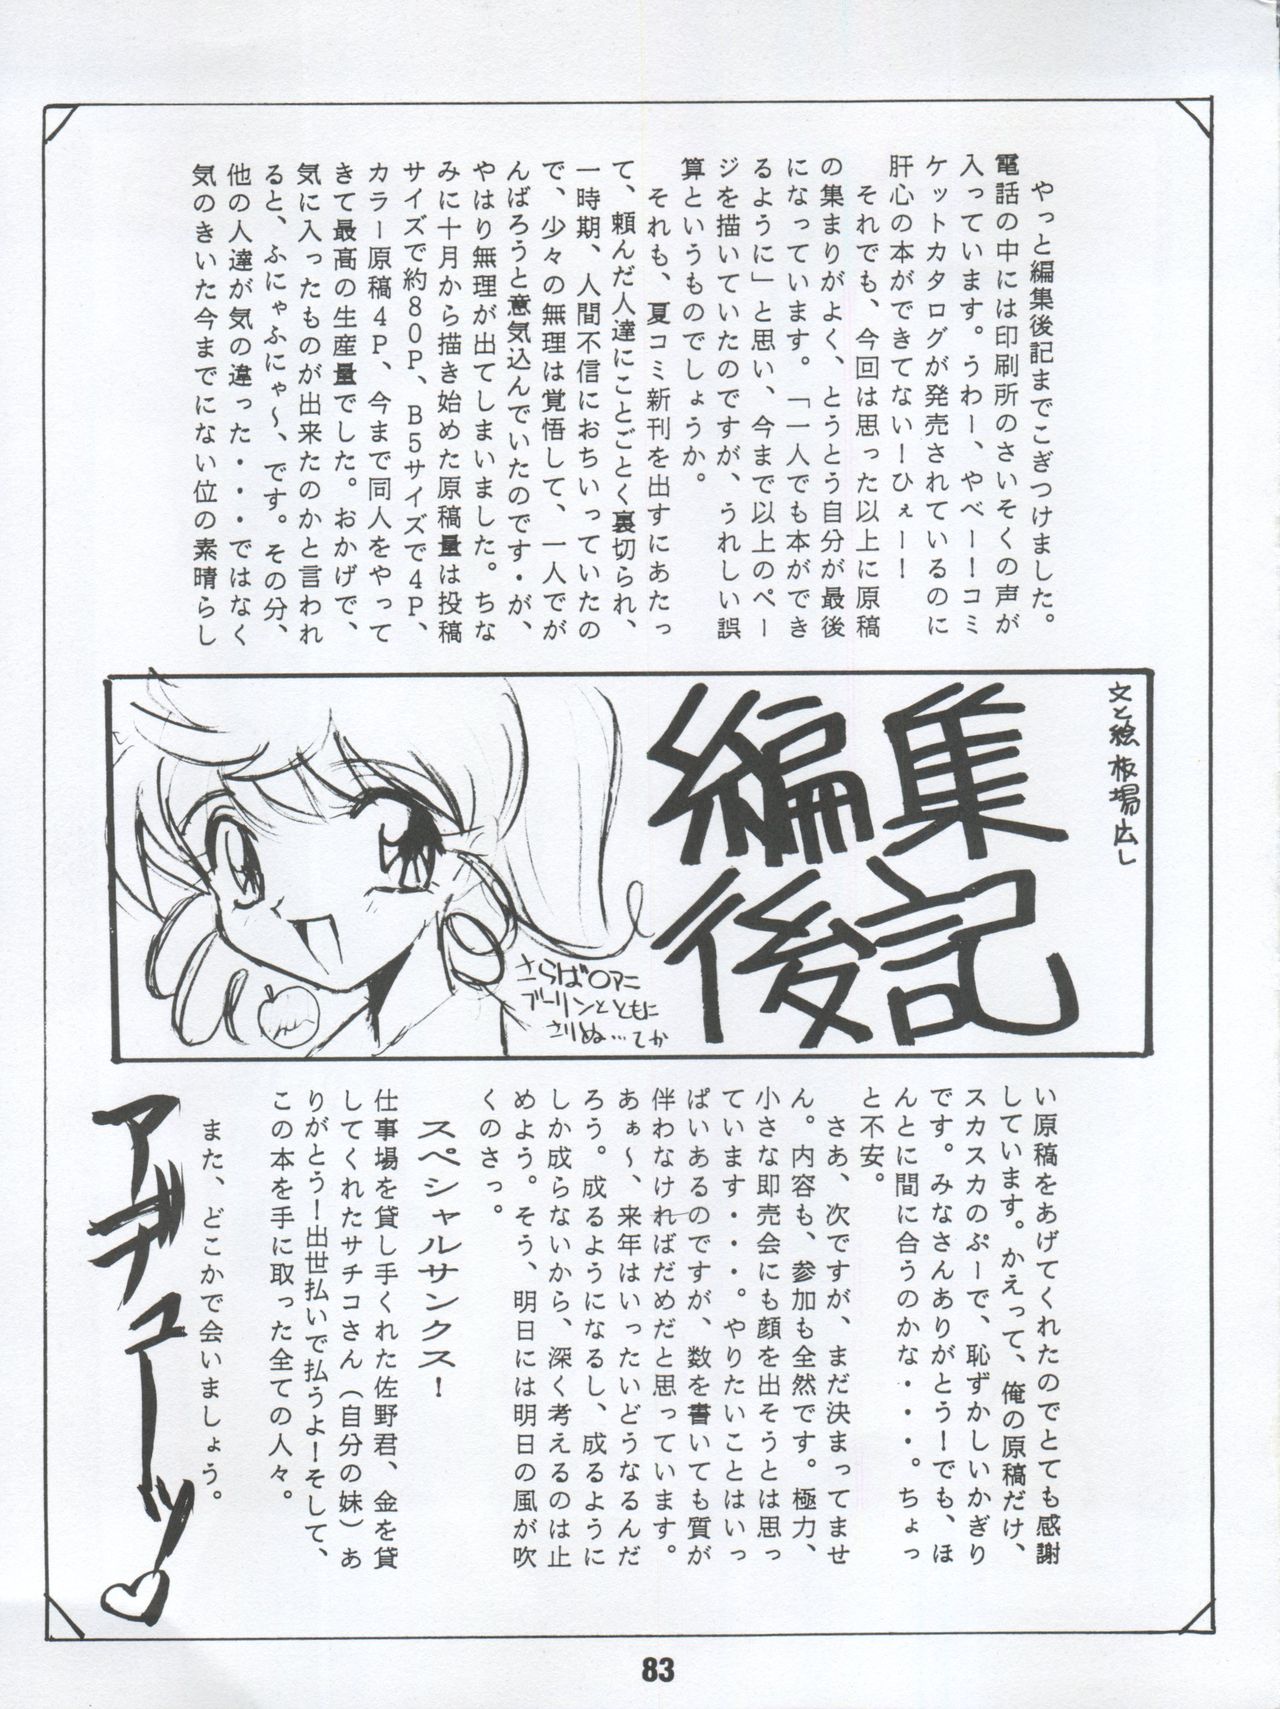 やっと編集後記までこぎつけました。
電話の中には印刷所のさいそくの声が
入っています。うわー、やべー！コミ
ケットカタログが発売されているのに
肝心の本ができてない！ひぇー！
それでも、今回は思った以上に原稿
の集まりがよく、とうとう自分が最後
になっています。「一人でも本ができ
るように」と思い、今まで以上のペー
ジを描いていたのですが、うれしい誤
算というものでしょうか。
それも、夏コミ新刊を出すにあたっ
て、頼んだ人達にことごとく裏切られ、
一時期、人間不信におちいっていたの
で、少々の無理は覚悟して、一人でが
んばろうと意気込んでいたのです・が、
やはり無理が出てしまいました。ちな
みに十月から描き始めた原稿量は投稿
サイズで約８０Ｐ、Ｂ５サイズで４Ｐ、
カラー原稿４Ｐ、今まで同人をやって
きて最高の生産量でした。おかげで、
気に入ったものが出来たのかと言われ
ると、ふにゃふにゃ～、です。その分、
他の人達が気の違った・・・ではなく
気のきいた今までにない位の素晴らし
文と絵 板場広し
編集
後記
さらば〇アニ
ブーリンとともに
さりぬ…てか
い原稿をあげてくれたのでとても感謝
しています。かえって、俺の原稿だけ、
スカスカのぷーで、恥ずかしいかぎり
です。みなさんありがとう！でも、ほ
んとに間に合うのかな・・・。ちょっ
と不安。
さあ、次ですが、まだ決まってませ
ん。内容も、参加も全然です。極力、
小さな即売会にも顔を出そうとは思っ
ています・・・。やりたいことはいっ
ぱいあるのですが、数を書いても質が
伴わなければだめだと思っています。
あぁ～、来年はいったいどうなるんだ
ろう。成るようになるし、成るように
しか成らないから、深く考えるのは止
めよう。そう、明日には明日の風が吹
くのさっ。
スペシャルサンクス！
仕事場を貸し手くれた佐野君、金を貸
してくれたサチコさん（自分の妹）あ
りがとう！出世払いで払うよ！そして、
この本を手に取った全ての人々。
また、どこかで会いましょう。
アデューッ♡
83